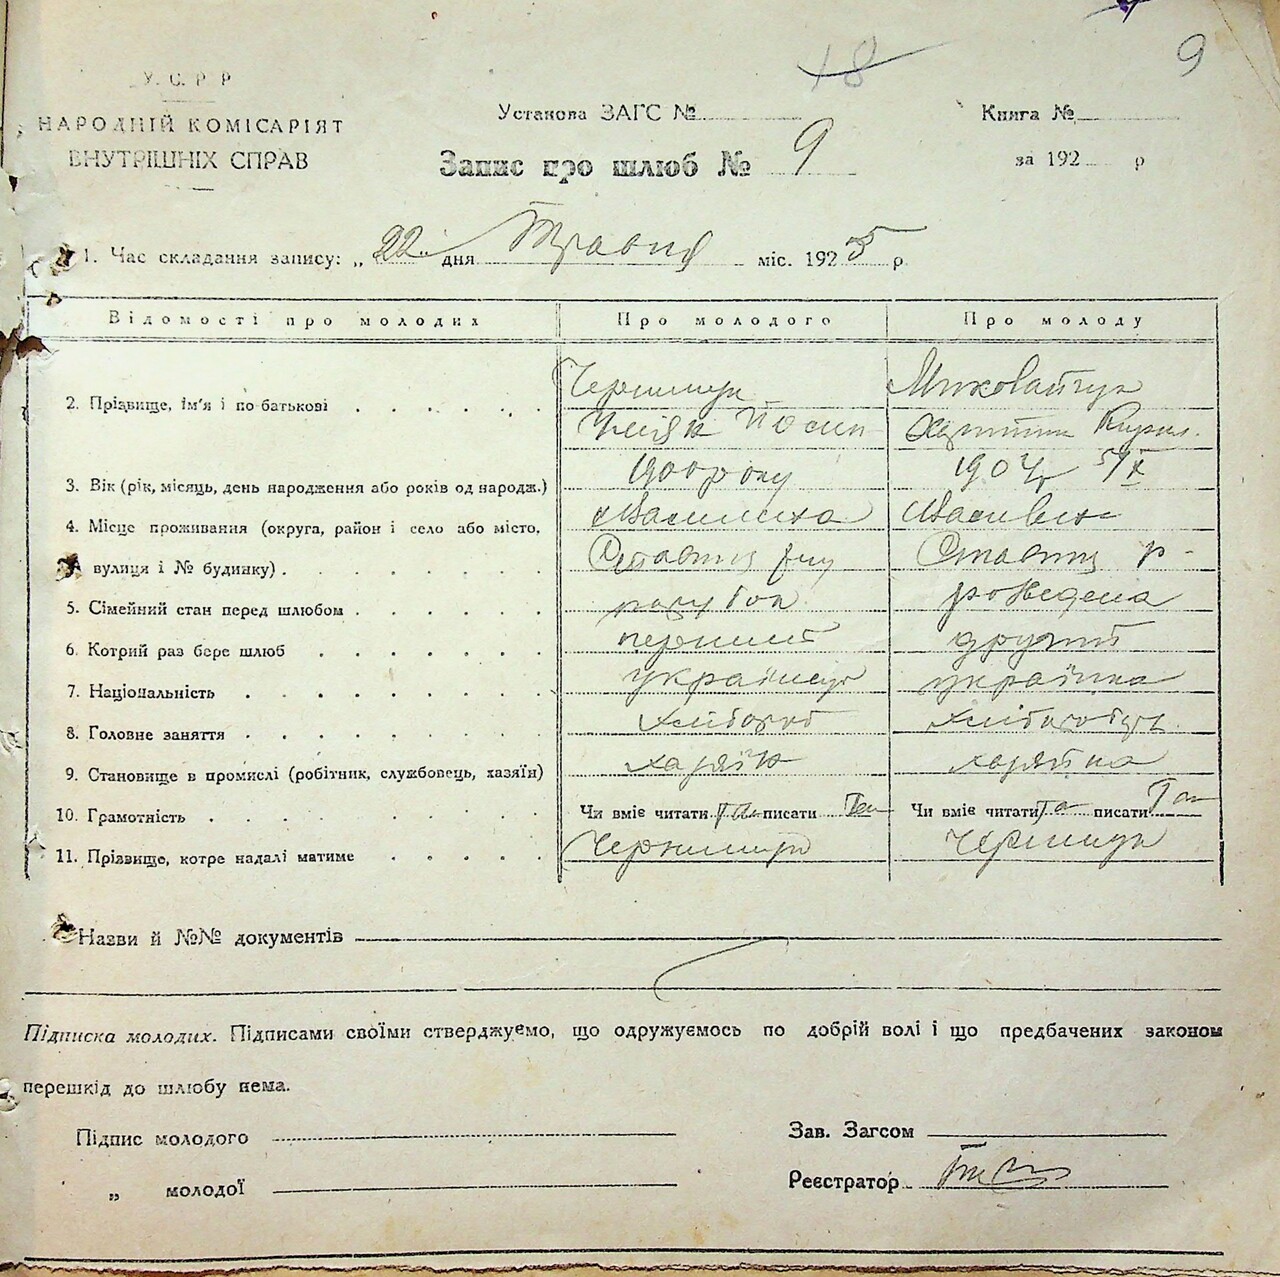 9
18
У. С. Р Р
НАРОДНІЙ КОМІСАРІЯТ
ВНУТРІШНІХ СПРАВ
Установа ЗАГС №
Книга №
Запис про шлюб № 9
за 192 р
1. Час складання запису: „ 22 дня Травня міс. 1925 р
Відомості про молодих Про молодого Про молоду
2. Прізвище, ім'я і по батькові
Йосип Кирил.
3. Вік (рік, місяць, день народження або років од народж.) 1900 року 1904 р
4. Місце проживання (округа, район і село або місто,
вулиця і № будинку) . Ставищ Ставищ р-
5. Сімейний стан перед шлюбом парубок розведена
6. Котрий раз бере шлюб перший другий
7. Національність українець українка
8. Головне заняття хлібороб
9. Становище в промислі (робітник, службовець, хазяїн) хазяїн хазяйка
10. Грамотність Чи вміє читати Так писати Так Чи вміє читати Так писати Так
11. Прізвище, котре надалі матиме
Назви й №№ документів
Підписка молодих. Підписами своїми стверджуємо, що одружуємось по добрій волі і що предбачених законом
перешкід до шлюбу нема.
Підпис молодого
Зав. Загсом
„ молодої
Реєстратор